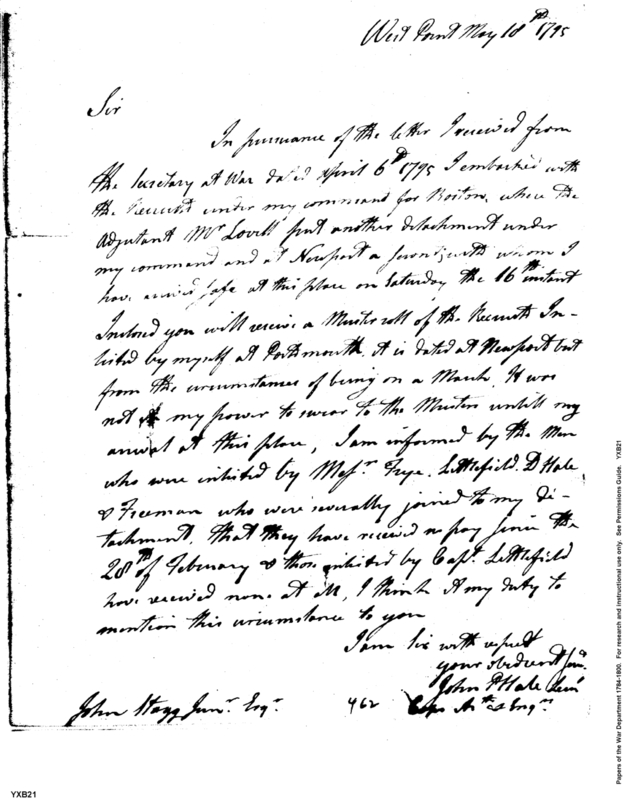 West Point May 18th 1795
Sir
In pursuance of the letter I received from
the Secretary at War dated April 6th 1795 I embarked with
the Recruits under my command for Boston, where the
Adjutant Mr Lovell put another detachment under
my command and at Newport a seventeenth whom I
have arrived safe at this place on Saturday the 16th instant
Inclosed you will receive a Muster roll of the Recruits In-
listed by myself at Portsmouth, it is dated at Newport but
from the circumstances of being on a March, It was
not my power to swear to the Musters untill my
arrival at this place, I am informed by the Men
who were inlisted by Messrs Frye. Littlefield. D Hale
& Freeman who were severally joined to my de-
tachment, that they have received no pay since the
28th of February & those inlisted by Capt. Littlefield
have received none at all, I think it my duty to
mention this circumstance to you
I am Sir with respect
your obedient Servt.
John P Hale
John Stagg Junr. Esqr.
462
Capt Art & Engrs
Papers of the War Department 1784-1800. For research and instructional use only. See Permissions Guide. YXB21
YXB21